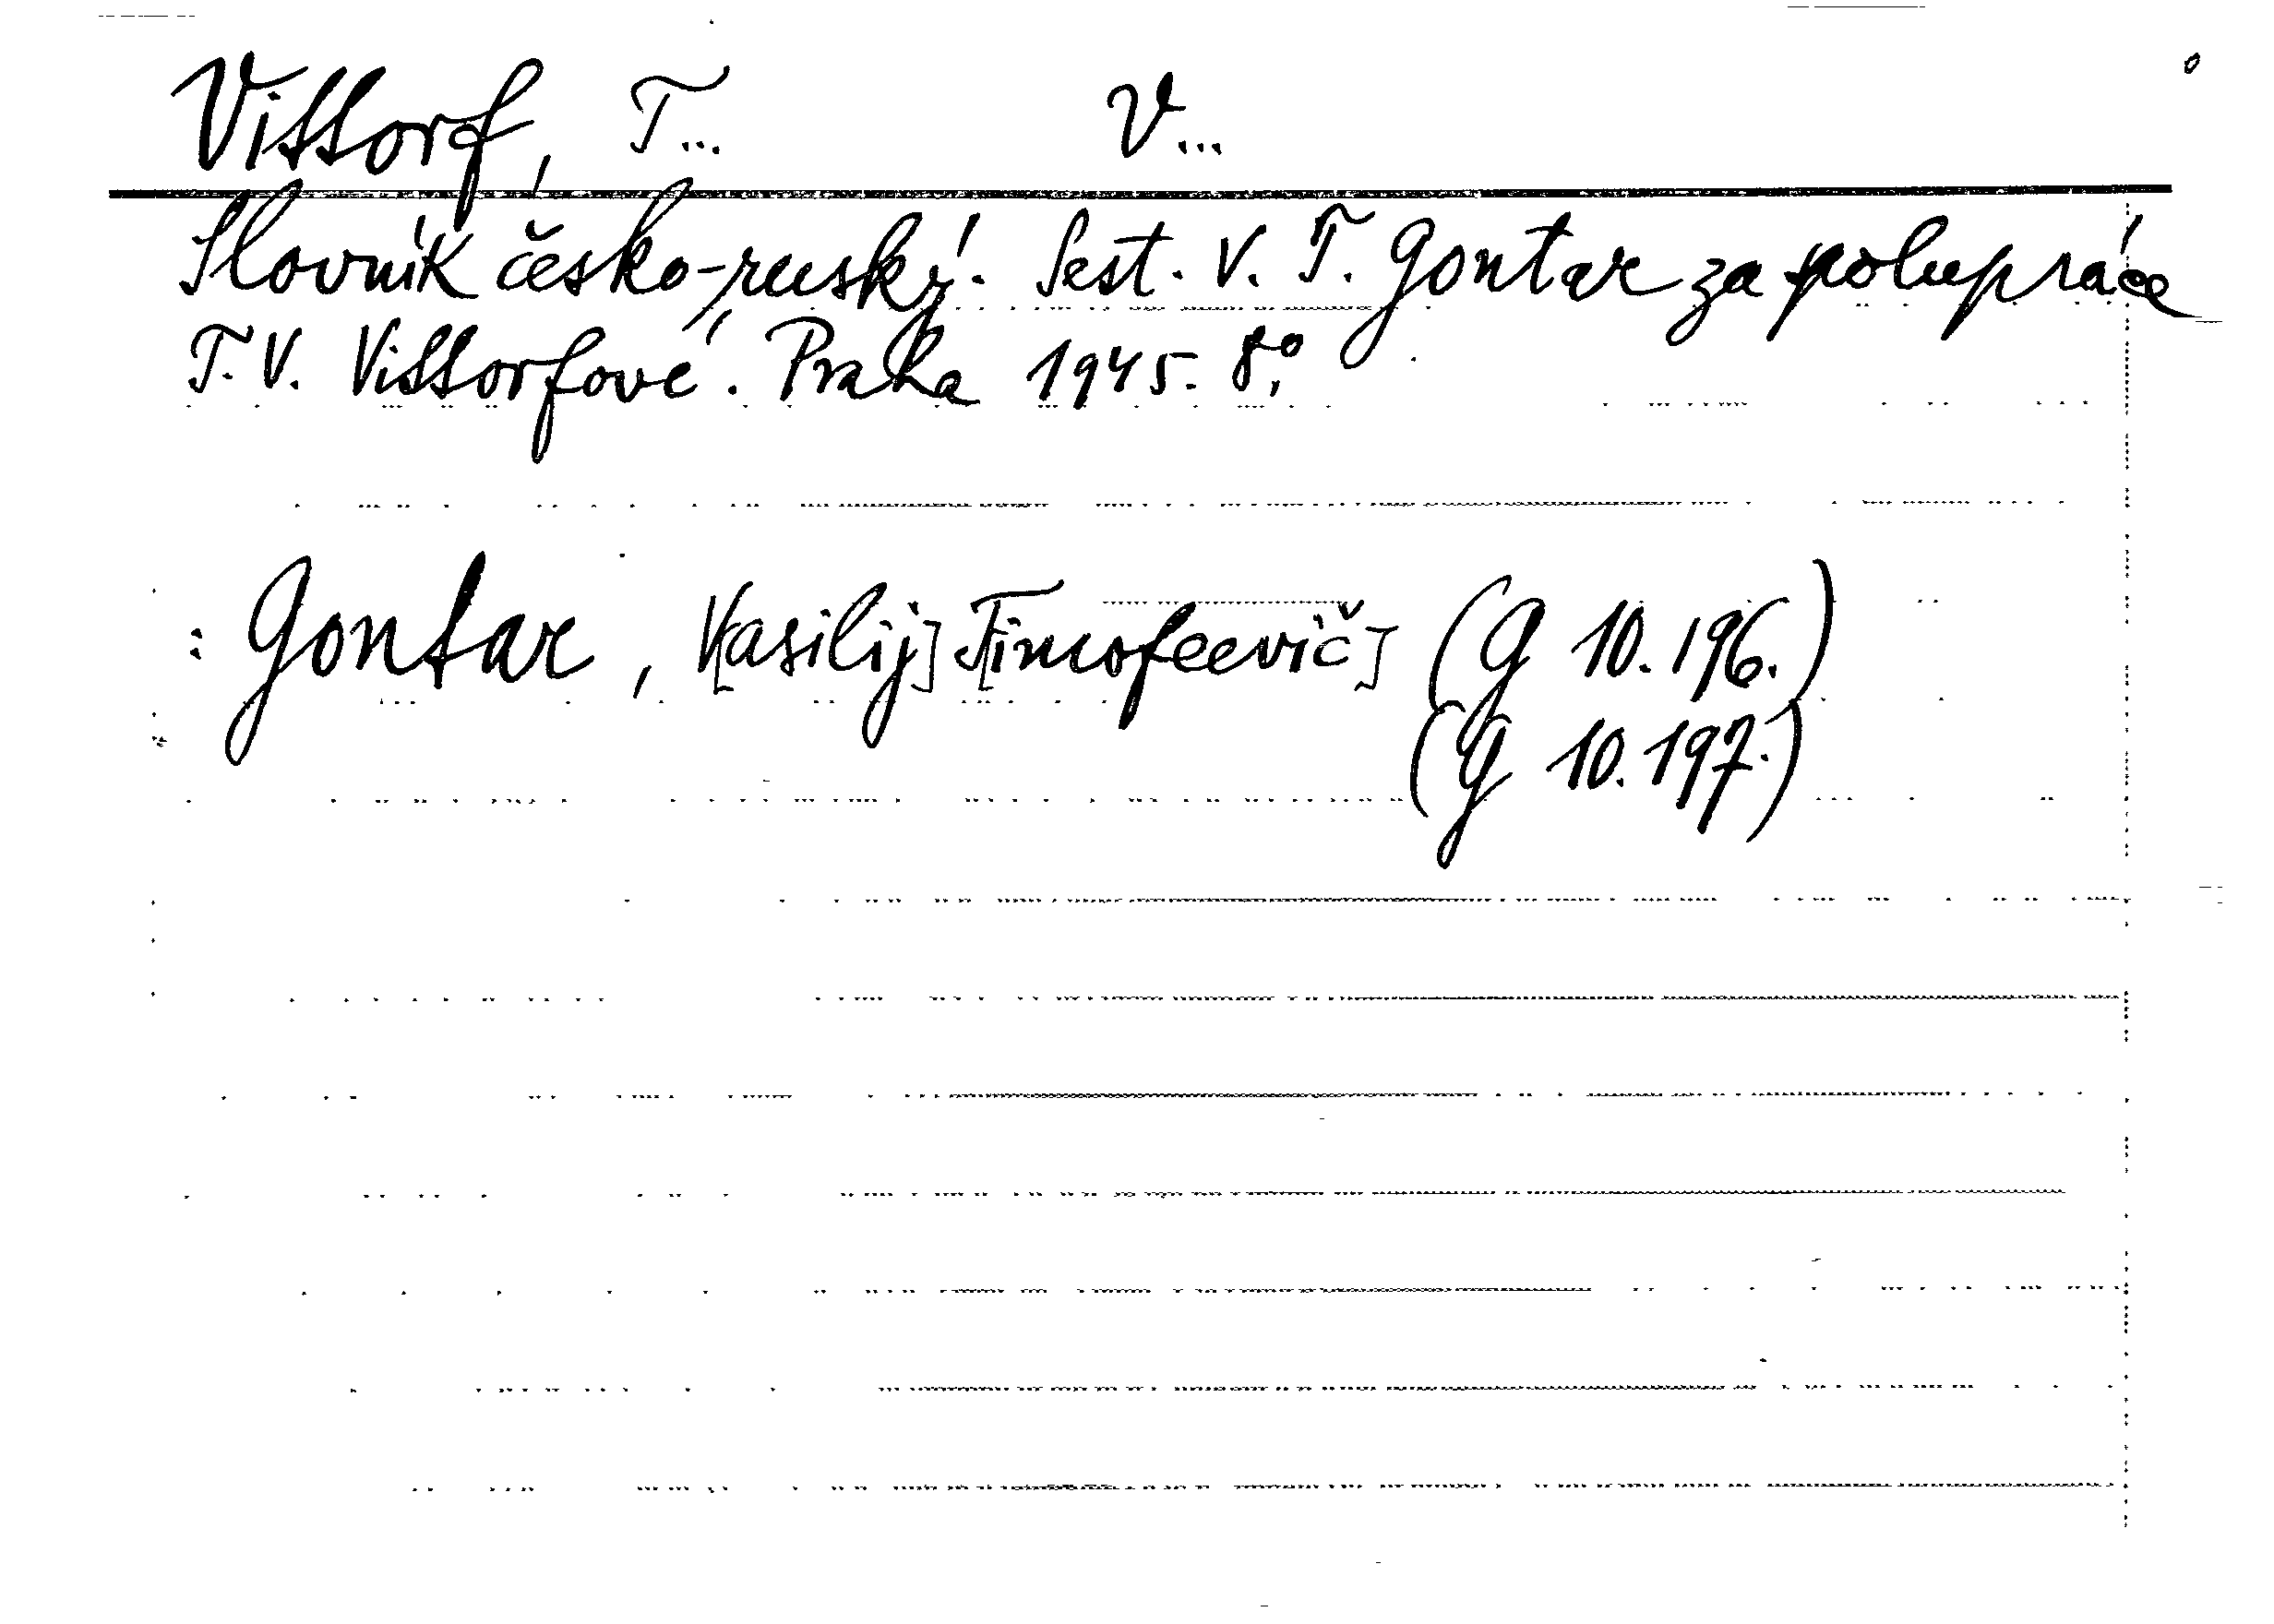 Vittorf, T... V...
Slovník česko-ruský. Sest. V. T. Gontar za spolupráce
T. V. Vittorfové. Praha 1945. 8.°
: Gontar, V[asilij] T[imofeevič] (G 10.196.)
(G 10.197.)